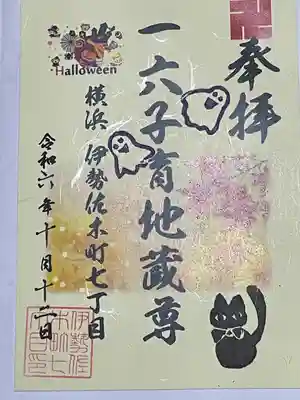 奉拝
一六子育地蔵尊
Halloween
横浜 伊勢佐木町七丁目
令和六年十月十二日
伊勢佐
木町七